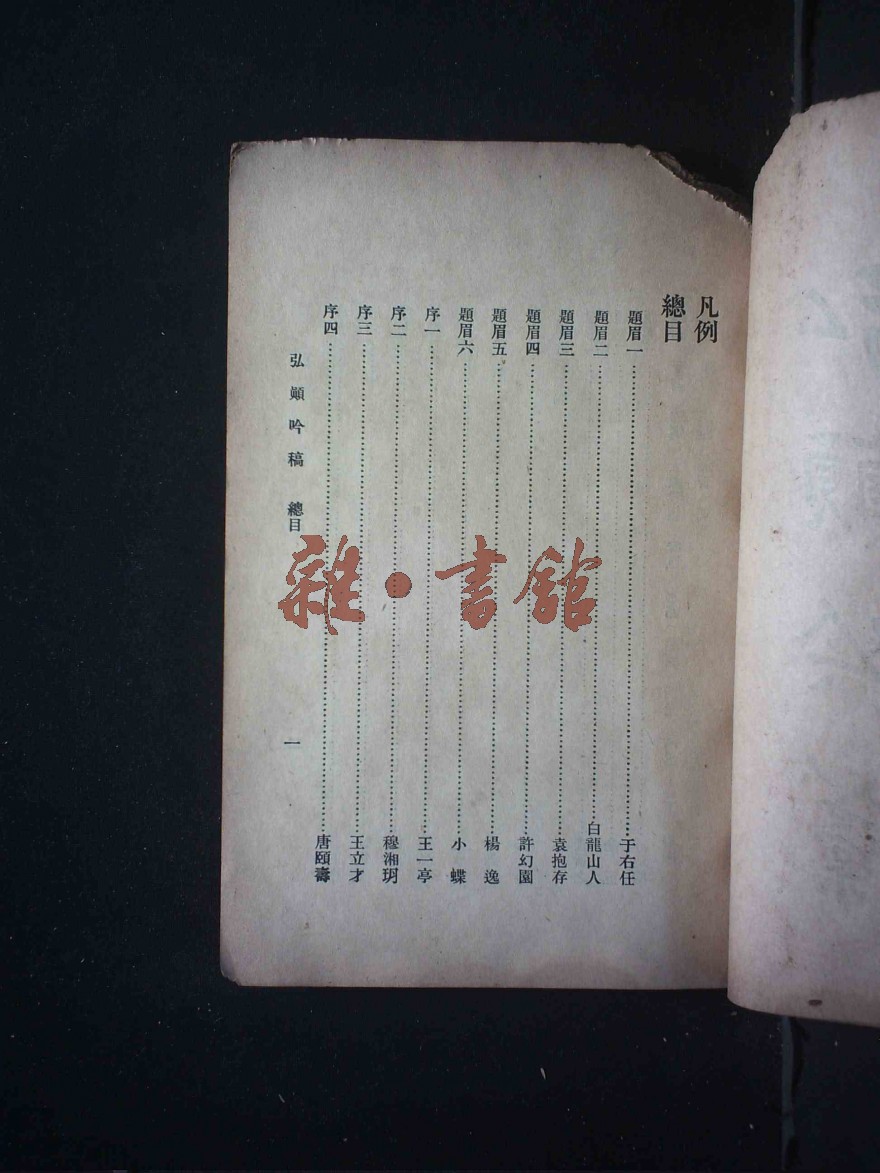 凡例
總目
題眉一……于右任
題眉二……白龍山人
題眉三……袁抱存
題眉四……許幻園
題眉五……楊逸
題眉六……小蝶
序一……王一亭
序二……穆湘玥
序三……王立才
序四……唐頤壽
弘顚吟稿 總目 一
雜·書館